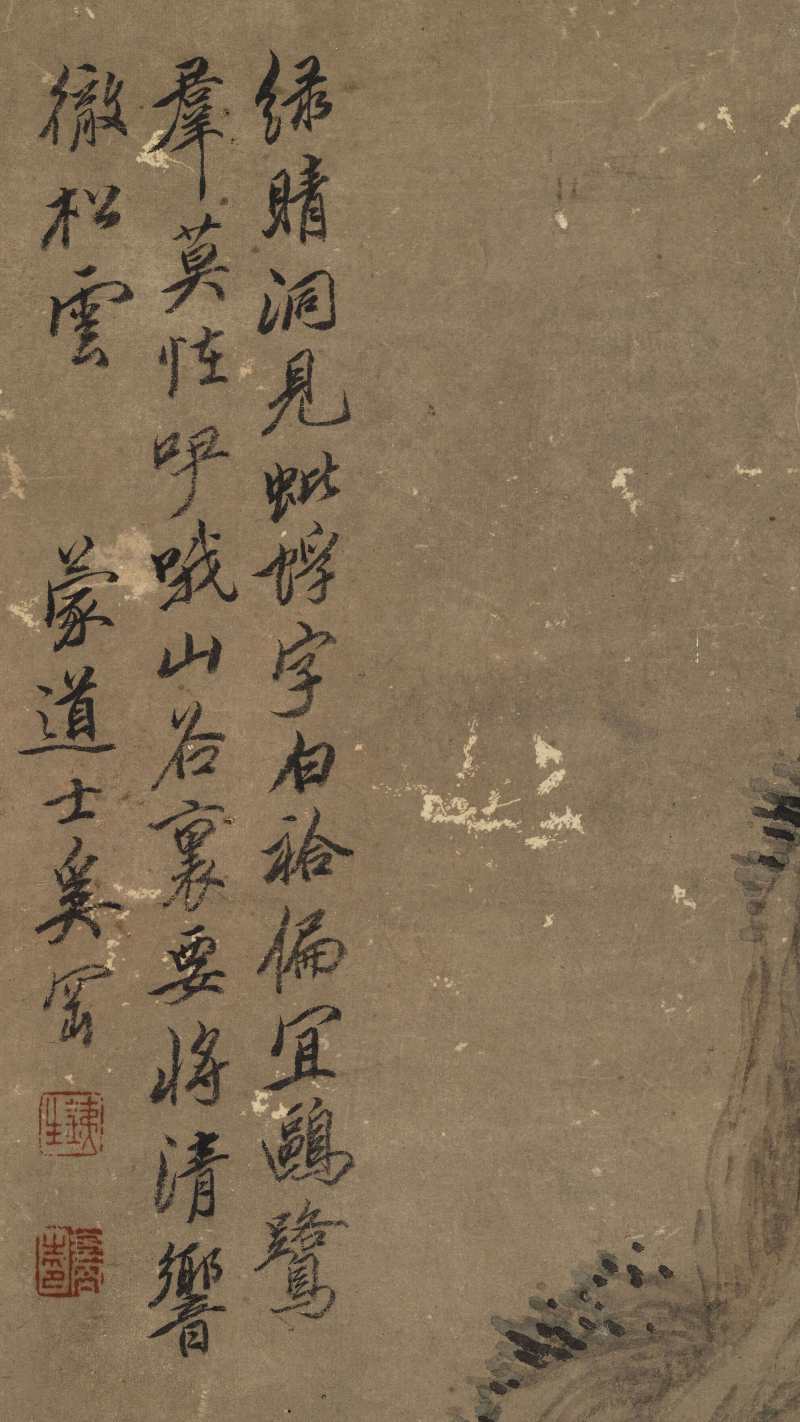 緑睛洞見蚍蜉字白袷偏宜鷗鷺
羣莫恠呼哦山谷裏要將清響
徹松雲 蒙道士奚岡
銕生